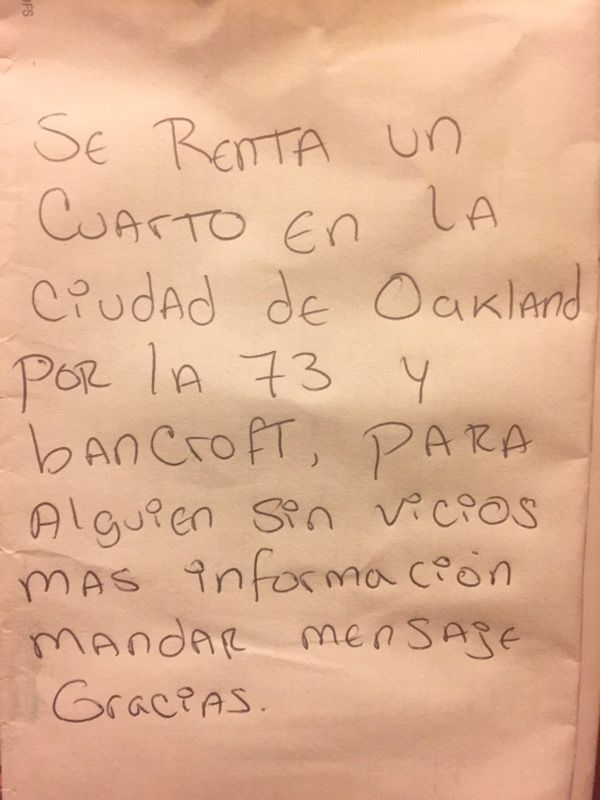 SE RENTA un
CUARTO En LA
CiUDAD de Oakland
POR lA 73 y
bANCroft, PARA
Alguien Sin vicios
MAS información
MANDAR MENSAJE
GraciAS.